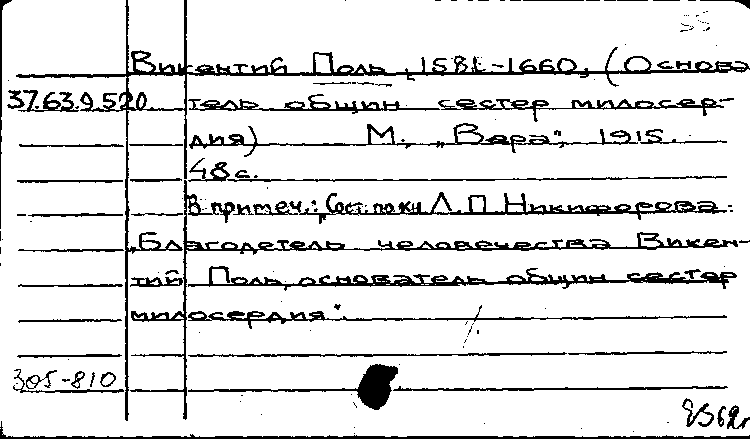 55
Викентий Поль, 1581-1660, (Основа
37.63.9.520 тель общин сестер милосер-
дия) М., „Вера", 1915.
48с.
В примеч.: „Сост. по кн Л.П Никифорова:
„Благодетель человечества Викен-
тий Поль, основатель общин сестер
милосердия".
305-810